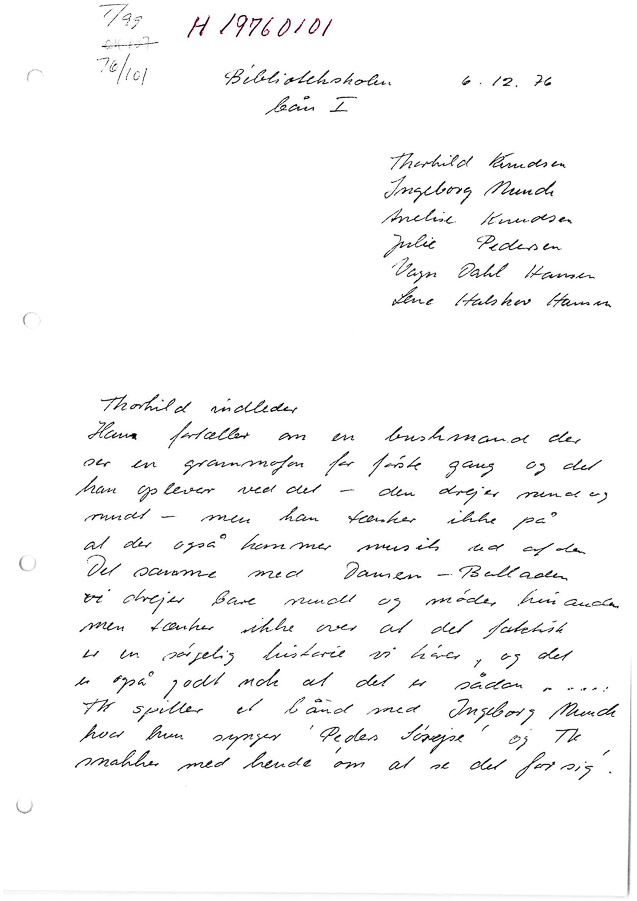 T/99
H 19760101
76/101
Biblioteksskolen 6.12.76
bån I
Thorkild Knudsen
Ingeborg Munch
Anelise Knudsen
Julie Pedersen
Vagn Dahl Hansen
Lene Halskov Hansen
Thorkild indleder
Han fortæller om en buskmand der
ser en grammofon for første gang og det
han oplever ved det – den drejer rund og
rundt – men han tænker ikke på
at der også kommer musik ud af den
Det samme med Dansen – Balladen
vi drejer bare rundt og møder hinanden
men tænker ikke over at det faktisk
er en sørgelig historie vi hører, og det
er også godt nok at det er sådan .....
TK spiller et bånd med Ingeborg Munch
hvor hun synger 'Peders ' og TK
snakker med hende 'om at se det for sig'.